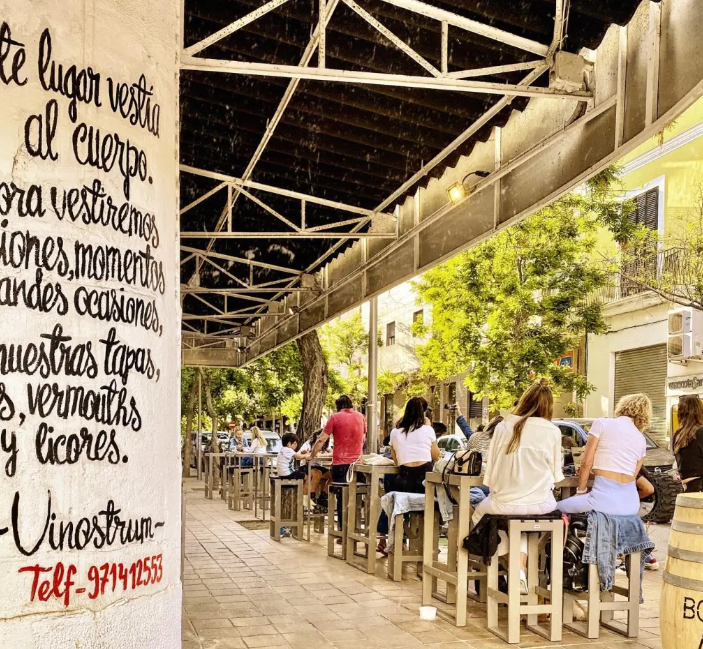 te lugar vestía
al cuerpo.
ora vestiremos
iones, momentos
andes ocasiones,
nuestras tapas,
s, vermouths
y licores.
-Vinostrum-
Telf-971412553
BO